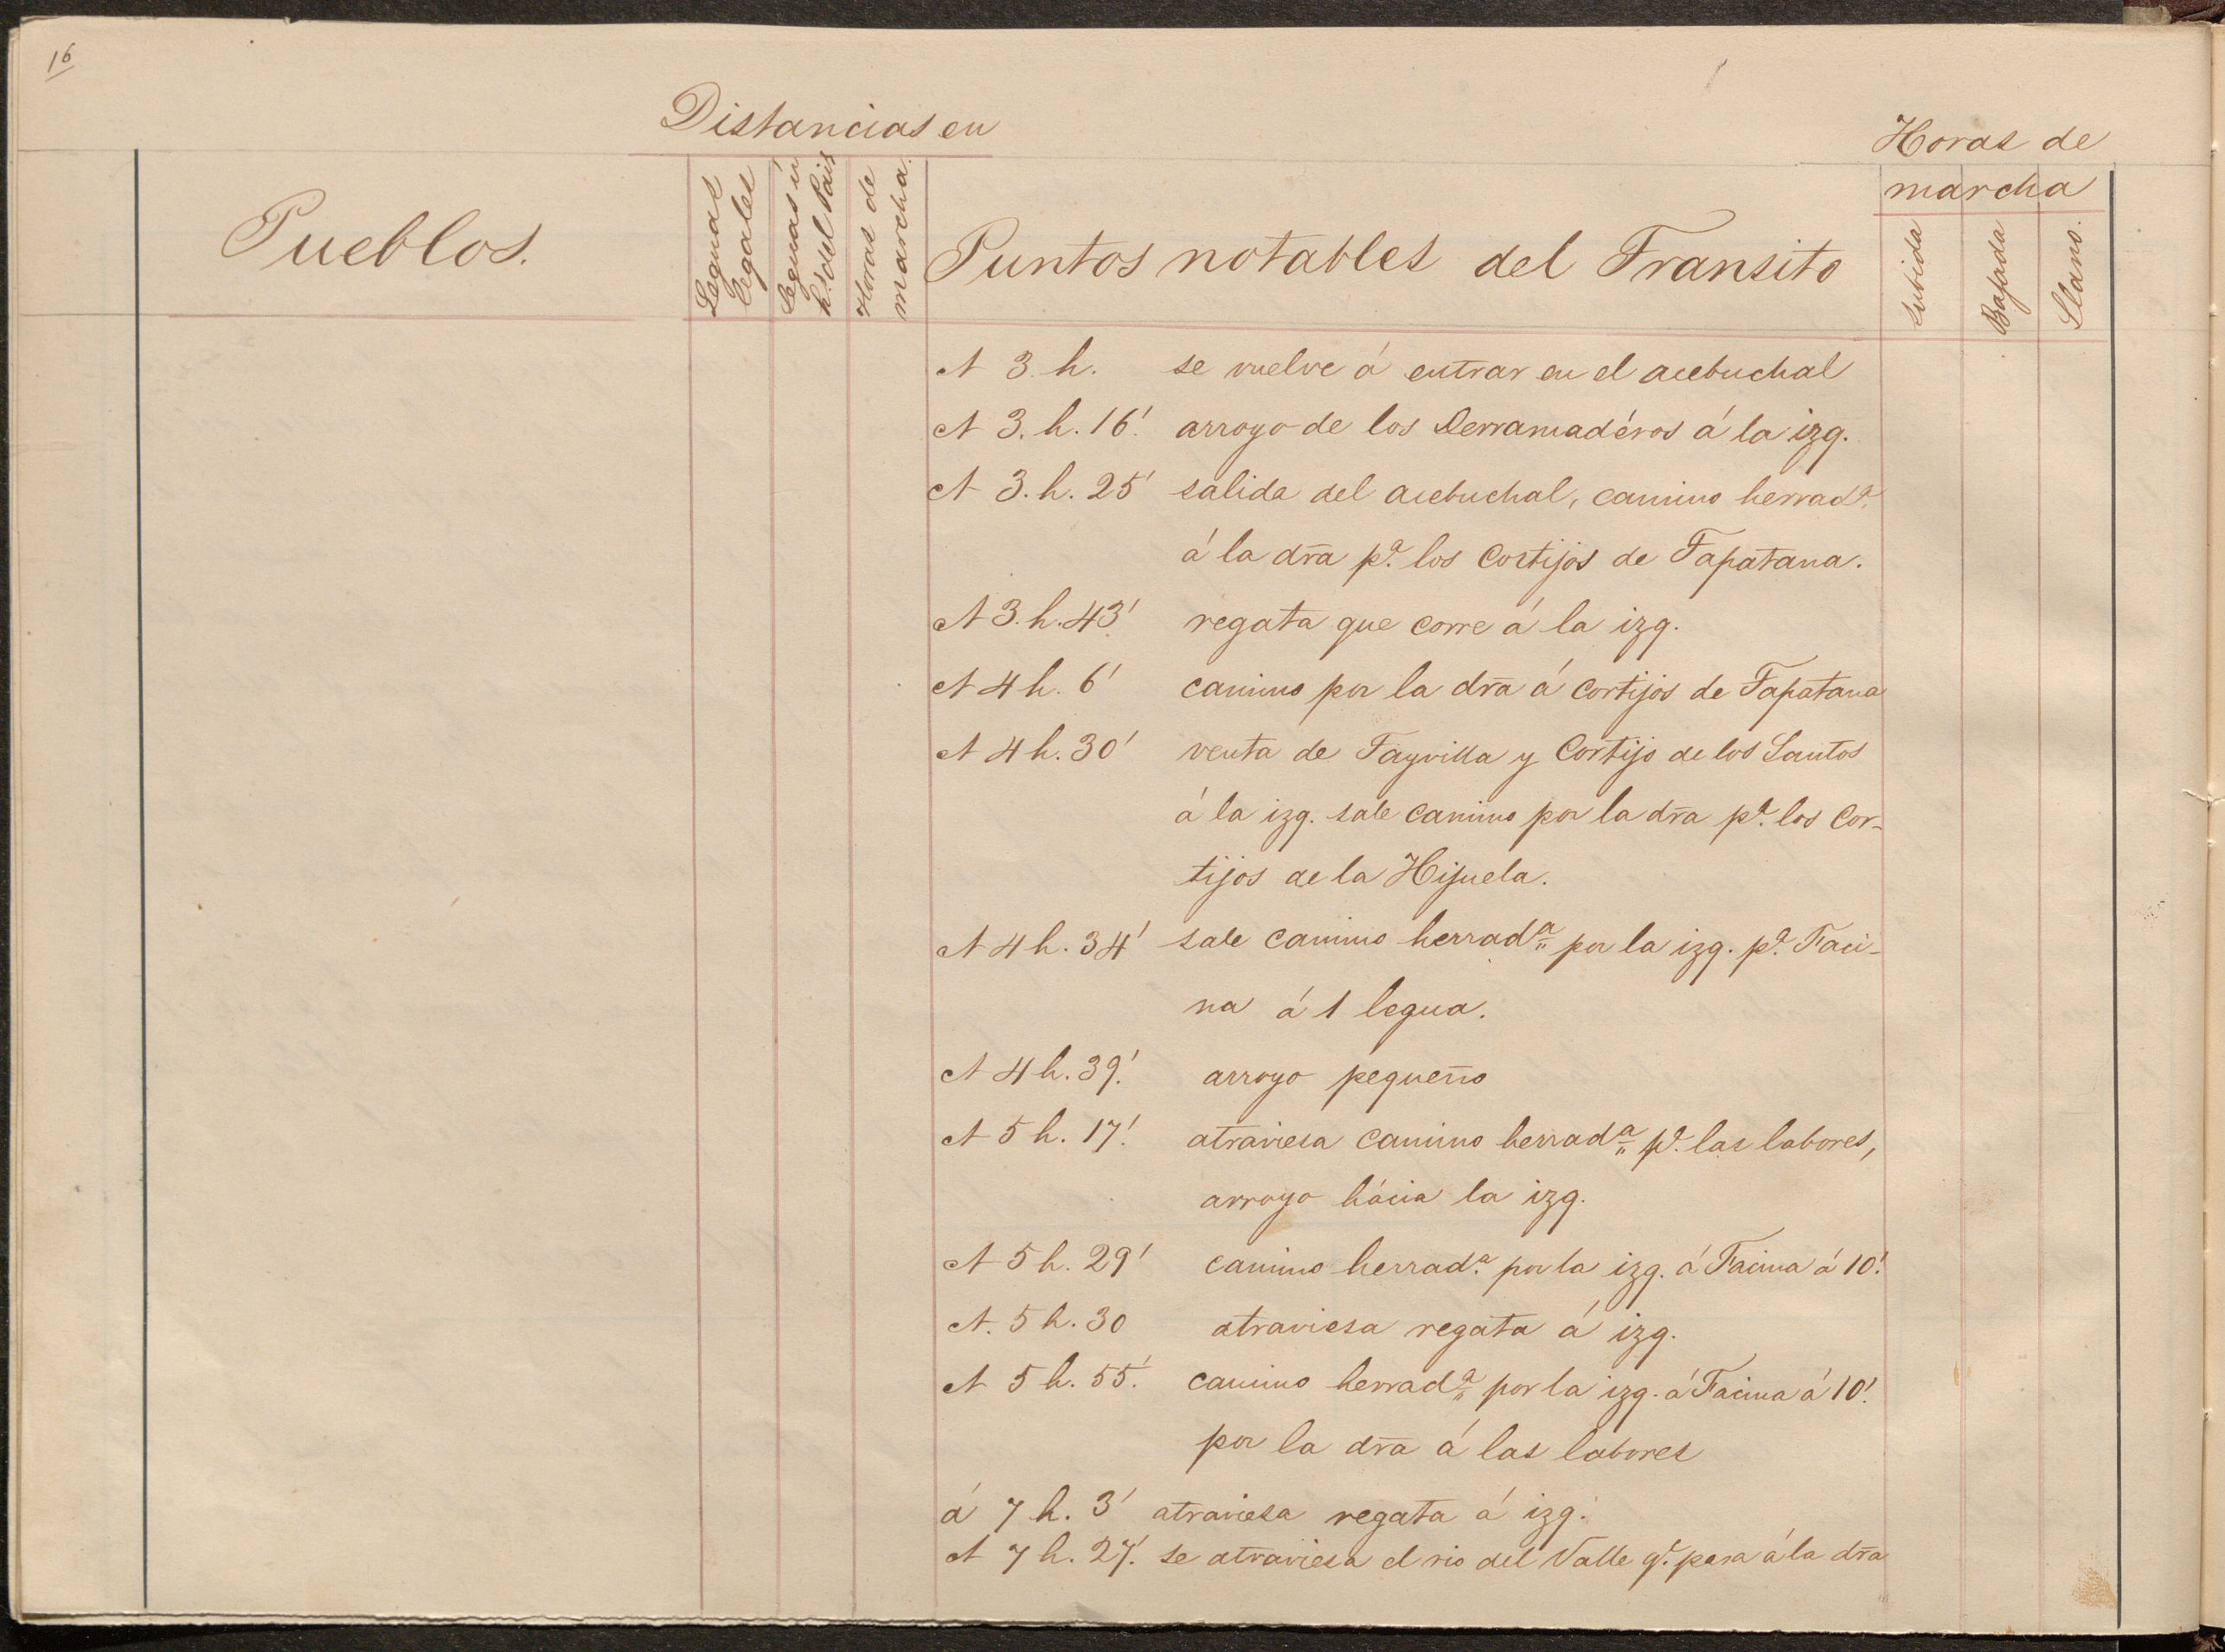 16
Distancias en
Horas de
marcha
Pueblos.
Leguas
legales
Leguas ú
h. del Pais
Horas de
marcha.
Puntos notables del Transito
subida
Bajada
Llano.
A 3 h. se vuelve á entrar en el acebuchal
A 3. h. 16'. arroyo de los Derramadéros á la izg.
A 3. h. 25' salida del acebuchal, camino herrad.ª
á la dr̃a p.ª los Cortijos de Tapatana.
A 3. h. 43' regata que corre á la izg.
A 4 h. 6' camino por la dr̃a á Cortijos de Tapatana
A 4 h. 30' venta de Tayvilla y Cortijo de los Santos
á la izg. sale camino por la dr̃a p.ª los Cor-
tijos de la Hijuela.
A 4 h. 34' sale camino herrad.ª por la izg. p.ª Faci-
na á 1 legua.
A 4 h. 39'. arroyo pequeño
A 5 h. 17'. atraviesa camino herrad.ª p.ª las labores,
arroyo hácia la izg.
A 5 h. 29' camino herrad.ª por la izg. á Facina á 10'.
A. 5 h. 30 atraviesa regata á izg.
A 5 h. 55'. camino herrad.ª por la izg. á Facina á 10'.
por la dr̃a á las labores
á 7 h. 3' atraviesa regata á izg.
A 7 h. 27'. se atraviesa el rio del Valle q.e pasa á la dr̃a